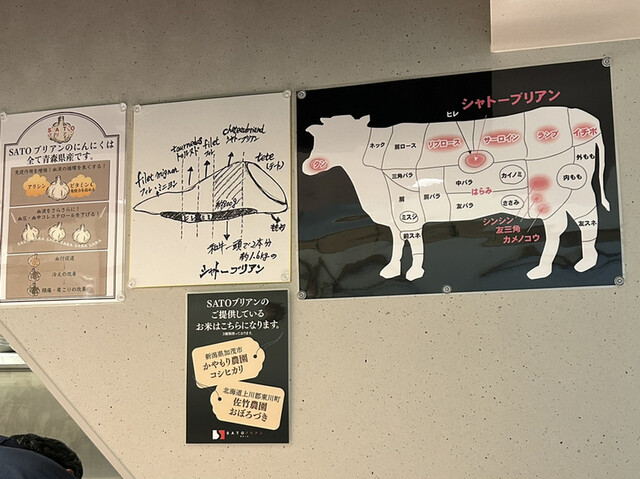 SATO
SATO ブリアンのにんにくは
全て青森県産です。
アリシン
ビタミンC
血行促進
冷えの改善
頭痛・肩こりの改善
chateaubriand
シャトーブリアン
tournedos
filet
フィレ
filet mignon
フィレ ミニヨン
tete
(テート)
ヒレ
和牛一頭で2本分
約1.6kgの
シャトーブリアン
シャトーブリアン
ヒレ
ネック
肩ロース
リブロース
サーロイン
ランプ
イチボ
タン
三角バラ
カイノミ
外もも
中バラ
内もも
はらみ
肩
肩バラ
友バラ
ささみ
ミスジ
シンシン
友三角
カメノコウ
前スネ
友スネ
SATOブリアンの
ご提供している
お米はこちらになります。
新潟県加茂市
かやもり農園
コシヒカリ
北海道上川郡東川町
佐竹農園
おぼろづき
SATOブリアン